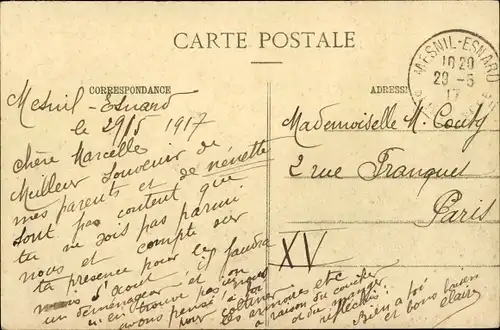 CARTE POSTALE
CORRESPONDANCE
Mesnil-Esnard
le 29/5 1917
Chère Marcelle
Meilleur souvenir de
mes parents et de nénette
sont pas content que
tu ne sois pas parmi
nous et compte sur
ta presence pour le
mois d'aout il faudra
un déménageur et on
n'en trouve pas
avons pensé à toi
pour coltiner
les armoires etc
a raison du couché
et du manger
réfléchis
Bien a toi
et bons baisers
Claire
ADRESSE
MESNIL-ESNARD
10 20
29 - 5
17
Mademoiselle M. Couty
2 rue Franquet
Paris
XV